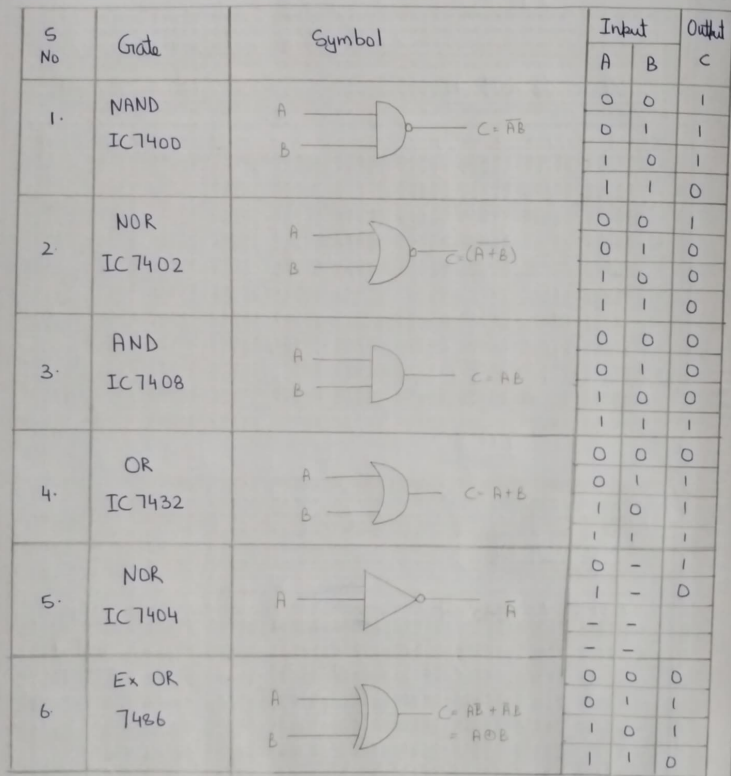 S No Gate Symbol Input Output
A B C
1. NAND IC7400 A B C = \overline{AB}
0 0 1
0 1 1
1 0 1
1 1 0
2. NOR IC7402 A B C=(\overline{A+B})
0 0 1
0 1 0
1 0 0
1 1 0
3. AND IC7408 A B C = AB
0 0 0
0 1 0
1 0 0
1 1 1
4. OR IC7432 A B C = A+B
0 0 0
0 1 1
1 0 1
1 1 1
5. NOR IC7404 A \overline{A}
0 - 1
1 - 0
- -
- -
6 Ex OR 7486 A B C = AB + AB
= A⊕B
0 0 0
0 1 1
1 0 1
1 1 0